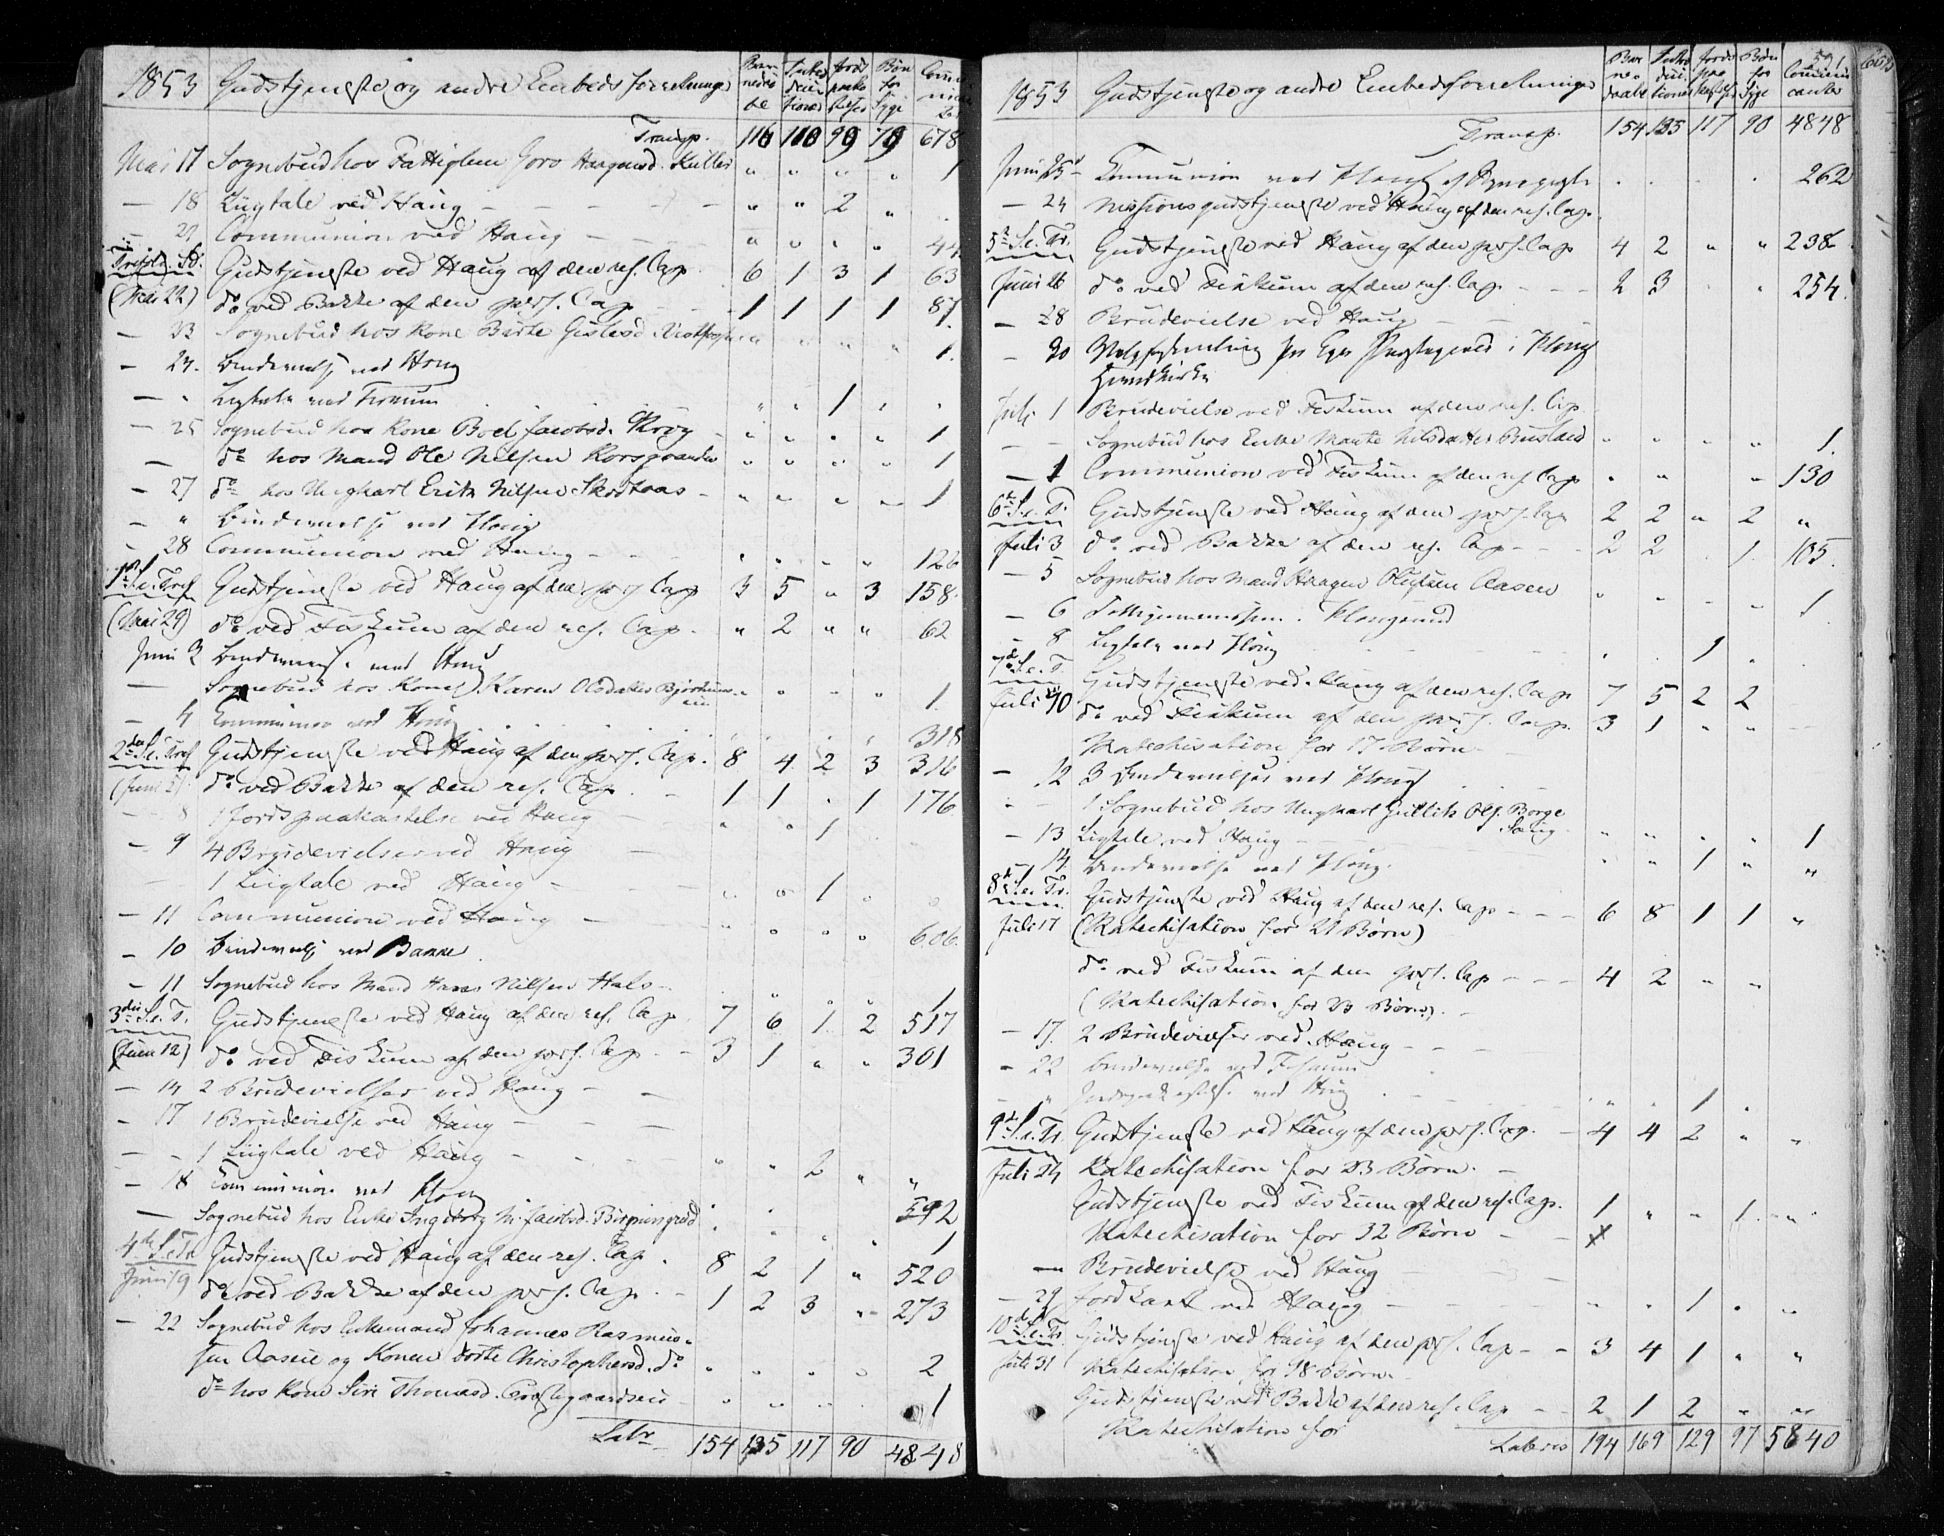 1853 Gudstjeneste og andre Embedsforretninger Barnedåbe Introductioner Jordpaakastelser Bøn for Syge Communicanter
Transp. 116 110 99 79 678
Mai 17 Sognebud hos Fattiglem Jøro Haagensd. " " " " 1
— 18 Liigtale ved Haug — — — " " 2 "
— 21 Communion ved Haug — — " " " " 44
Trefold. Sd. Gudstjeneste ved Haug af den res. Cap. 6 1 3 1 63
(Mai 22) do ved Bakke af den pers. Cap 1 1 1 1 87
— 23 Sognebud hos Kone Birte Gislesd. " " " " 1.
— 24. Brudevielse ved Houg
— " Ligtale ved Fiskum 1
— 25 Sognebud hos Kone Boel Jacobsd. Krog " " " " 1
— do hos Mand Ole Nilsen Korsgaarden " " " " 1
— 27 do hos Ungkarl Erik Nilsen Skodtaas " " " " 1
— " Brudevielse ved Houg
— 28 Communion ved Haug — — " " " 122
1ste S. e. Tref Gudstjeneste ved Haug af den pers Cap 3 5 " 3 158.
(Mai 29) do ved Fiskum af den res. Cap. " 2 " " 62
Juni 3 Brudevielse ved Houg
— Sognebud hos Konen Karen Olsdatter " " " 1
— 4 Communion ved Houg 318
2den S. e. Tref Gudstjeneste ved Haug af den pers. Cap. 8 4 2 3 316
(Juni 5) do ved Bakke af den res. Cap. 1 1 . 1 176
— 8 1 Jordspaakastelse ved Haug — " " 1
— 9 4 Brudevielser ved Haug —
— 1 Liigtale ved Haug — — " " 1 " "
— 11 Communion ved Haug — " " " " 606.
— 10 Brudevielse ved Bakke
— 11 Sognebud hos Mand Hans Nilsen Hals — . " " " 1
3die S. e. T. Gudstjeneste ved Haug af den res. Cap. 7 6 1. 2 517
(Juni 12) do ved Fiskum af den pers. Cap. — 3 1 " " 301
— 14 2 Brudevielser ved Haug — —
— 17 1 Brudevielse ved Haug — —
— - 1 Liigtale ved Haug — — " " 2 " "
— 18 Communion ved Houg 592
— Sognebud hos Enke Ingeborg M. Jacobsd. 1
4de S. e. Tr Gudstjeneste ved Haug af den res. Cap. 8 2 1 " 520
Juni 19 do ved Bakke af den pers. Cap. — 1 2 3 " 273
— 22 Sognebud hos Enkemand Johannes Rasmus-
sen Aaseie og Konen Dorte Christophersd. do " " " " 2
do hos Kone Siri Thomasd. " " " " 1
Latr. 154 135 117 90 4848
591.
1853 Gudstjeneste og andre Embedsforretninger Barnedaabe Introductioner Jordspaakastelser Bøn for Syge Communicanter
Transp. 154 135 117 90 4848
Juni 25 Communion ved Houg af 262
— 24 Missionsgudstjeneste ved Haug af den res. Cap.
5te S. e. Tr. Gudstjeneste ved Haug af den pers. Cap 4 2 " " 238
Juni 26 do ved Fiskum af den res. Cap. — — 2 3 " " 254.
— 28 Brudevielse ved Haug — —
— 30 Valgforhandling for Eger Præstegjeld i Houg
Hovedkirke
Juli 1 Brudevielse ved Fiskum af den res. Cap.
— - Sognebud hos Enke Marte Nilsdatter " " " " 1.
— 1 Communion ved Fiskum af den res. Cap " " " 130
6te S. e. T. Gudstjeneste ved Haug af den pers. Cap 2 2 " 2 "
Juli 3 do ved Bakke af den res. Cap — — 2 2 1. 105.
— 5 Sognebud hos Mand Haagen Olufsen Aasen " " " " 1
— 6
— 8 Ligtale ved Houg 1
7de S. e. T. Gudstjeneste ved Haug af den res. Cap 7 5 2 2
Juli 10 do ved Fiskum af den pers. Cap. 3 1 " " —
Katechisation for 17 Børn —
— 12 3 Brudevielser ved Houg
" — 1 Sognebud hos Ungkarl Gullik Ols. Borge " " " " 1
— 13 Ligtale ved Haug — " " 1 " "
— 14. Brudevielse ved Houg.
8de S. e. Tr. Gudstjeneste ved Haug af den res. Cap — — — 6 8 1 1 "
Juli 17 (Katechisation for 21 Børn)
do ved Fiskum af den pers. Cap — — — 4 2 " "
(Katechisation for 23 Børn). —
— 17. 2 Brudevielser ved Haug — — —
— 22 Brudevielse ved Fiskum
— " Jordspaakastelse ved Houg 1
9de S. e. Tr. Gudstjeneste ved Haug af den pers. Cap. — 4 4 2 " "
Juli 24 Katechisation for 23 Børn. —
Gudstjeneste ved Fiskum af den res. Cap. 1 " " 1 "
Katechisation for 32 Børn — —
— Brudevielse ved Haug —
— 29 Jordkast ved Haug — — — " " 1 " "
10de S. e. Tr. Gudstjeneste ved Haug af den pers. Cap — — 3 4 1 " "
Juli 31 Katechisation for 98 Børn.
Gudstjeneste ved Bakke af den res. Cap — — 2 1 2 " "
Katechisation for
Lateris 194 169 129 97 5840